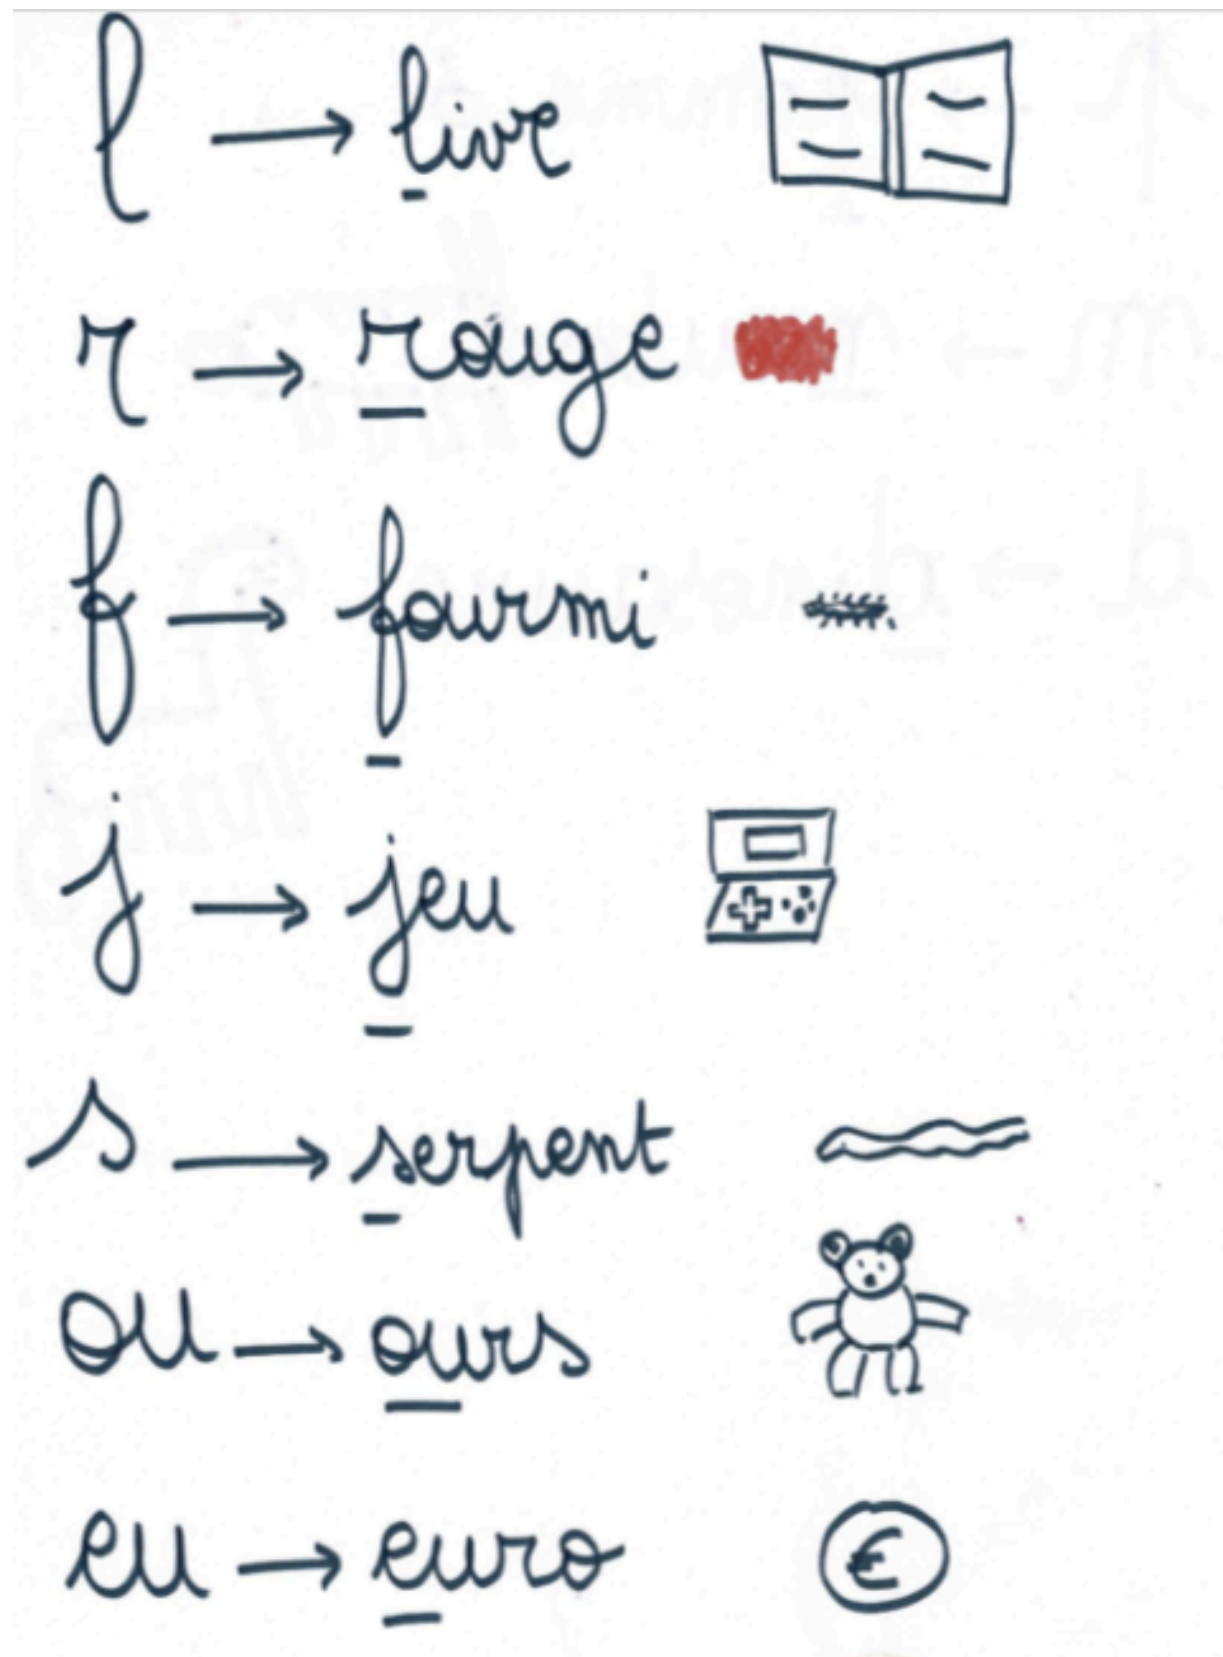 l → live
r → rouge
f → fourmi
j → jeu
s → serpent
ou → ours
eu → euro €